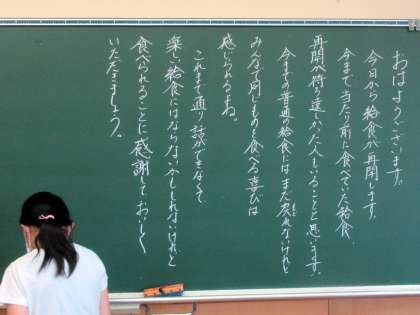 おはようございます。
今日から給食が再開します。
今まで当たり前に食べていた給食、
再開が待ち遠しかった人もいることと思います。
今までの普通の給食にはまだ戻れないけれど
みんなで同じものを食べる喜びは
感じられるよね。
これまで通り話ができなくて
楽しい給食にはならないかもしれないけれど
食べられることに感謝しておいしく
いただきましょう。